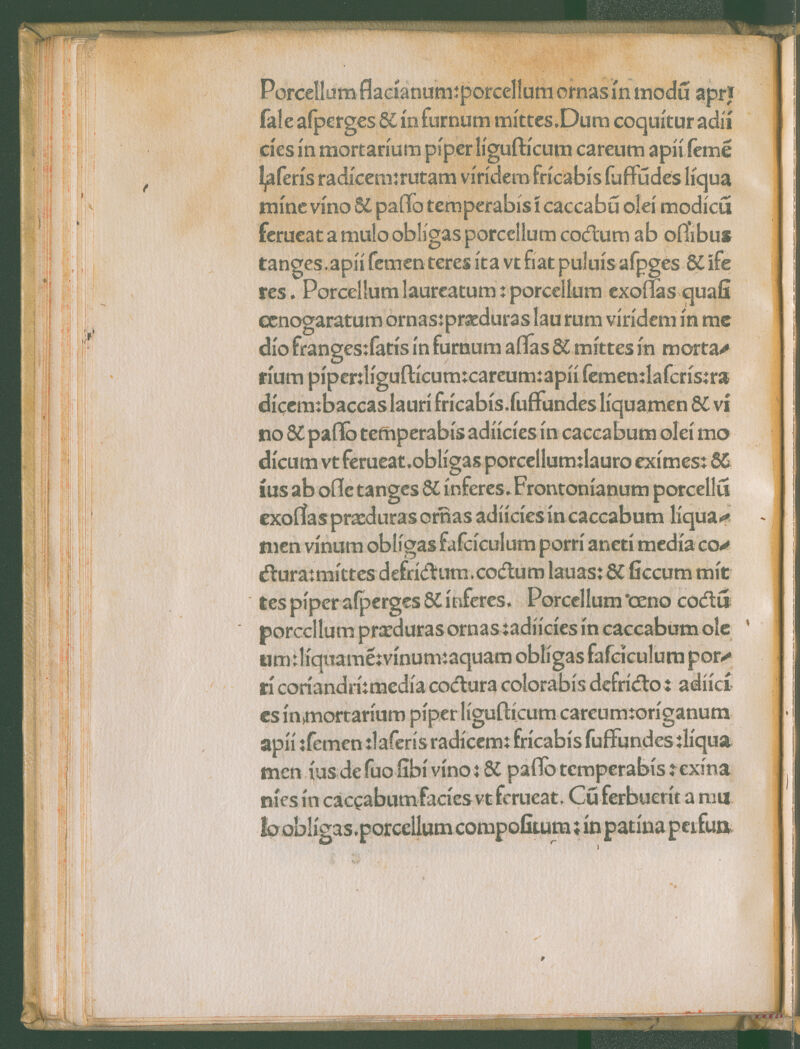 Porcellum flacíanum:porcellum ornas ín modū aprı
ſale aſperges & ín furnum míttes.Dum coquítur adíí
cíes ín mortaríum píper líguſtícum careum apíí ſemē
laſerís radícem:rutam víridem frícabís ſuffūdes líqua
míne víno & paſſo temperabís ī caccabū oleí modícū
ferueat a mulo oblígas porcellum coctum ab oſſibus
tanges.apíí ſemen teres íta vt fiat puluís aſpges & ife
res. Porcellum laureatum : porcellum exoſſas quaſi
œnogaratum ornas:præduras lau rum víridem ín me
dío franges:ſatís ín furnum aſſas & míttes ín morta⸗
ríum píper:líguſtícum:careum:apíí ſemen:laſerís:ra
dícem:baccas laurí frícabís.ſuffundes líquamen & ví
no & paſſo tem̄perabís adíícíes ín caccabum oleí mo
dícum vt ferueat.oblígas porcellum:lauro exímes: &
íus ab oſſe tanges & ínferes. Frontoníanum porcellū
exoſſas præduras orn̄as adíícíes ín caccabum líqua⸗
men vínum oblígas faſcículum porrí anetí medía co⸗
ctura:míttes defríctum.coctum lauas: & ſiccum mít
tes píper aſperges & ínferes. Porcellum œno coctū
porcellum præduras ornas:adíícíes ín caccabum ole
um:líquamē:vínum:aquam oblígas faſciculum por⸗
rí coríandrí:medía coctura colorabís defrícto : adíící
es ín mortaríum píper líguſtícum careum:oríganum
apíí :ſemen :laſerís radícem: frícabís ſuffundes :líqua
men íus de ſuo ſibí víno : & paſſo temperabís : exína
níes ín caccabum facíes vt ferueat. Cū ferbuerít a mu
lo oblígas.porcellum compoſitum : ín patína perfun